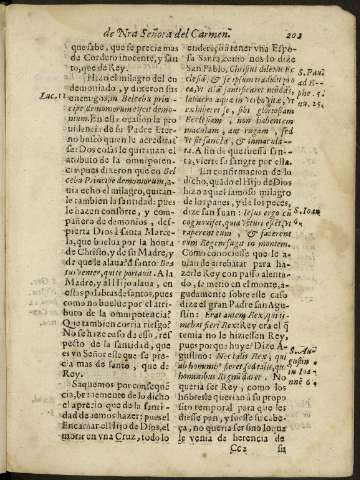 de Nra Señora del Carmen. 202
que sabe, que se precia mas
de Cordero inocente, y san-
to, que de Rey.
Hizo el milagro del en
demoniado, y dixeron sus
Luc. 11
enemigos: in Belcebu prin-
cipe dæmoniorum eiecit demo-
nium. En esta ocasion la pro
uidencia de su Padre Eter-
no buscò quien le acreditas-
se: Dos cosas le quitauan el
atributo de la omnipoten-
cia, pues dixeron que en Bel
cebu Principe dæmoniorum, a-
uia echo el milagro, quitan-
le tambien la santidad: pues
le hacen consorte, y com-
pañero de demonios, des-
pierta Dios à santa Marce-
la, que buelua por la honra
de Christo, y de su Madre,
y de que le alaua? santo: Bea
tus venter, qui te portauit. A la
Madre, y al Hijo alaua, en
estas palabras de santos, pues
como no buelue por el atri
buto de la omnipotencia?
Que tambien corria riesgo?
No se hize caso de esso, res-
pecto de la santidad, que
es vn Señor este que se pre-
cia mas de santo, que de
Rey.
Saquemos por consequẽ-
cia, breuemente de lo dicho
el aprecio que de la santi-
dad deuemos hazer: pues el
Encarnar el Hijo de Dios, el
morir en vna Cruz, todo lo
endereçò à tener vna Espo-
sa Santa, como nos lo dize
San Pablo, Christus dilexit Ec
S. Pau.
ad E-
phe. 5.
nu. 25.
clesiã, & se ipsum tradidit pro
ea, vt illã sanctificaret mũdãs,
lauacro aquæ in verbo vitæ, vt
exhiberet se, sibi gloriosam
Ecclesiam, non habentem
maculam, aut rugam, sed
vt sit sancta, & immacula-
ta. A fin de que fuesse san-
ta, vierte su sangre por ella.
En confirmacion de lo
dicho, quãdo el Hijo de Dios
hizo aquel famoso milagro
de los panes, y de los pezes,
dize san Iuan: Iesus ergo cũ
S. Ioan
6
cognouisset, quia vẽturi essẽt, vt
raperent eum, & facerent
eum Regem fugit in montem.
Como conociesse que le a-
uian de arrebatar para ha-
zerle Rey con passo alenta-
do, se metio en el monte, a-
gudamente sobre este caso
dize el gran Padre san Agus-
tin: Erat autem Rex, qui ti-
mebat fieri Rex? Rey era el q̃
temia no le hiziessen Rey,
pues por que huye? Dize A-
S. Au-
gustin
in Ioa-
nnẽ 6
gustino: Nec talis Rex, qui
ab hominibus fieret, sed talis, qui
hominibus Regnũ daret. No
queria ser Rey, como los
hõbres le querian à su pro-
posito temporal para que les
diesse pan, y fuesse su cabe-
ça, no queria ser sino lo que
le venia de herencia de
Cc2 su